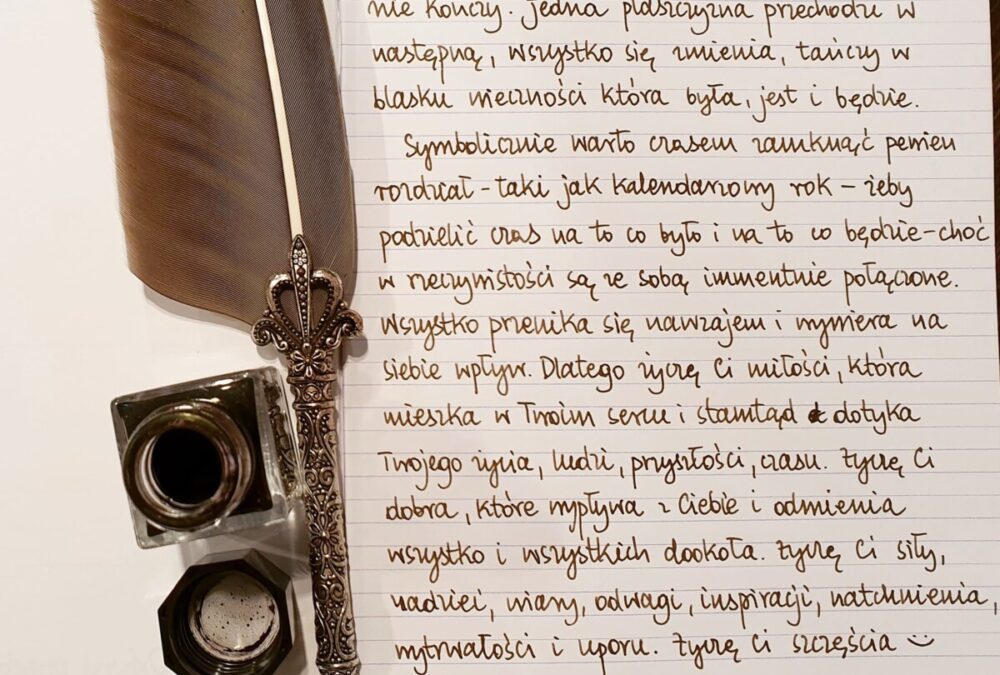 nie kończy. Jedna płaszczyzna przechodzi w
następną, wszystko się zmienia, tańczy w
blasku wieczności która była, jest i będzie.
Symbolicznie warto czasem zamknąć pewien
rozdział - taki jak kalendarzowy rok - żeby
podzielić czas na to co było i na to co będzie - choć
w rzeczywistości są ze sobą immentnie połączone.
Wszystko przenika się nawzajem i wywiera na
siebie wpływ. Dlatego życzę Ci miłości, która
mieszka w Twoim sercu i stamtąd dotyka
Twojego życia, ludzi, przyszłości, czasu. Życzę Ci
dobra, które wypływa z Ciebie i odmienia
wszystko i wszystkich dookoła. Życzę Ci siły,
nadziei, wiary, odwagi, inspiracji, natchnienia,
wytrwałości i uporu. Życzę Ci szczęścia :)